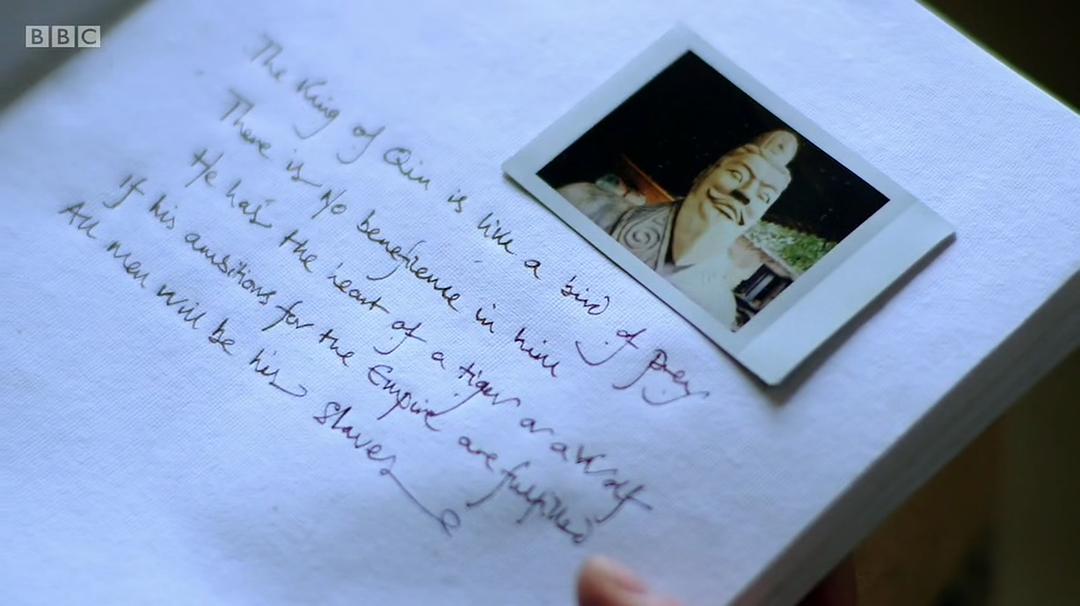 BBC
The King of Qin is like a bird of prey
There is No beneficence in him
He has the heart of a tiger or a Wolf
If his ambitions for the Empire are fulfilled
All men will be his slaves